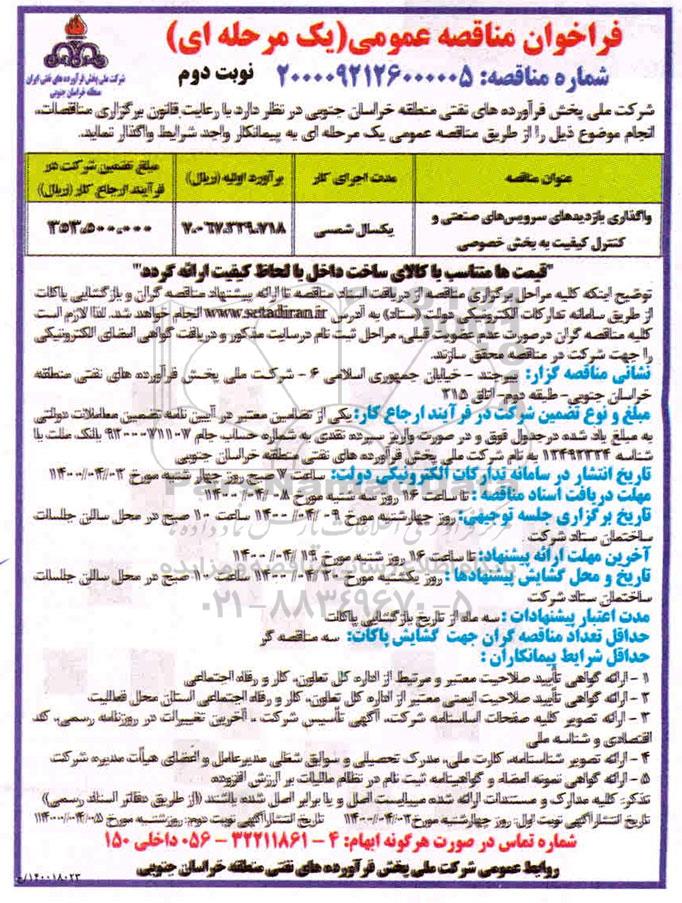 فراخوان مناقصه عمومی(یک مرحله ای)
شماره مناقصه: ۲۰۰۰۰۹۲۱۲۶۰۰۰۰۰۵ نوبت دوم
شرکت ملی پخش فرآورده های نفتی ایران
منطقه خراسان جنوبی
شرکت ملی پخش فرآورده های نفتی منطقه خراسان جنوبی در نظر دارد با رعایت قانون برگزاری مناقصات،
انجام موضوع ذیل را از طریق مناقصه عمومی یک مرحله ای به پیمانکار واجد شرایط واگذار نماید.
عنوان مناقصه
مدت اجرای کار
برآورد اولیه (ریال)
مبلغ تضمین شرکت در
فرآیند ارجاع کار (ریال)
واگذاری بازدیدهای سرویس‌های صنعتی و
کنترل کیفیت به بخش خصوصی
یکسال شمسی
۷.۰۶۷.۳۲۹.۷۱۸
۳۵۳.۵۰۰.۰۰۰
"قیمت ها متناسب با کالای ساخت داخل با لحاظ کیفیت ارائه گردد"
توضیح اینکه کلیه مراحل برگزاری مناقصه از دریافت اسناد مناقصه تا ارائه پیشنهاد مناقصه گران و بازگشایی پاکات
از طریق سامانه تدارکات الکترونیکی دولت (ستاد) به آدرس www.setadiran.ir انجام خواهد شد. لذا لازم است
کلیه مناقصه گران درصورت عدم عضویت قبلی، مراحل ثبت نام درسایت مذکور و دریافت گواهی امضای الکترونیکی
را جهت شرکت در مناقصه محقق سازند.
نشانی مناقصه گزار: بیرجند - خیابان جمهوری اسلامی ۶ - شرکت ملی پخش فرآورده های نفتی منطقه
خراسان جنوبی- طبقه دوم- اتاق ۲۱۵
مبلغ و نوع تضمین شرکت در فرآیند ارجاع کار: یکی از تضامین معتبر در آیین نامه تضمین معاملات دولتی
به مبلغ یاد شده درجدول فوق و در صورت واریز سپرده نقدی به شماره حساب جام ۹۲۰۰۰۷۱۱۰۷ بانک ملت با
شناسه ۱۲۴۹۲۳۲۴ به نام شرکت ملی پخش فرآورده های نفتی منطقه خراسان جنوبی
تاریخ انتشار در سامانه تدارکات الکترونیکی دولت: ساعت ۷ صبح روز چهار شنبه مورخ ۱۴۰۰/۰۴/۰۲
مهلت دریافت اسناد مناقصه : تا ساعت ۱۶ روز سه شنبه مورخ ۱۴۰۰/۰۴/۰۸
تاریخ برگزاری جلسه توجیهی: روز چهارشنبه مورخ ۱۴۰۰/۰۴/۰۹ ساعت ۱۰ صبح در محل سالن جلسات
ساختمان ستاد شرکت
آخرین مهلت ارائه پیشنهاد: تا ساعت ۱۶ روز شنبه مورخ ۱۴۰۰/۰۴/۱۹
تاریخ و محل گشایش پیشنهادها : روز یکشنبه مورخ ۱۴۰۰/۰۴/۲۰ ساعت ۱۰ صبح در محل سالن جلسات
ساختمان ستاد شرکت
مدت اعتبار پیشنهادات : سه ماه از تاریخ بازگشایی پاکات
حداقل تعداد مناقصه گران جهت گشایش پاکات: سه مناقصه گر
حداقل شرایط پیمانکاران :
۱ - ارائه گواهی تأیید صلاحیت معتبر و مرتبط از اداره کل تعاون، کار و رفاه اجتماعی
۲ - ارائه گواهی تأیید صلاحیت ایمنی معتبر از اداره کل تعاون، کار و رفاه اجتماعی استان محل فعالیت
۳ - ارائه تصویر کلیه صفحات اساسنامه شرکت، آگهی تأسیس شرکت ، آخرین تغییرات در روزنامه رسمی، کد
اقتصادی و شناسه ملی
۴ - ارائه تصویر شناسنامه، کارت ملی، مدرک تحصیلی و سوابق شغلی مدیرعامل و اعضای هیأت مدیره شرکت
۵ - ارائه گواهی نمونه امضاء و گواهینامه ثبت نام در نظام مالیات بر ارزش افزوده
تذکر: کلیه مدارک و مستندات ارائه شده میبایست اصل و یا برابر اصل شده باشند (از طریق دفاتر اسناد رسمی)
تاریخ انتشار آگهی نوبت اول: روز چهارشنبه مورخ ۱۴۰۰/۰۴/۰۲ تاریخ انتشار آگهی نوبت دوم: روزشنبه مورخ ۱۴۰۰/۰۴/۰۵
شماره تماس در صورت هرگونه ابهام: ۴ - ۳۲۲۱۱۸۶۱ - ۰۵۶ داخلی ۱۵۰
روابط عمومی شرکت ملی پخش فرآورده های نفتی منطقه خراسان جنوبی
۱۴۰۰۱۸۰۲۳/خ
پایگاه اطلاع رسانی مناقصه و مزایده
۰۲۱-۸۸۳۴۹۶۷۰-۵